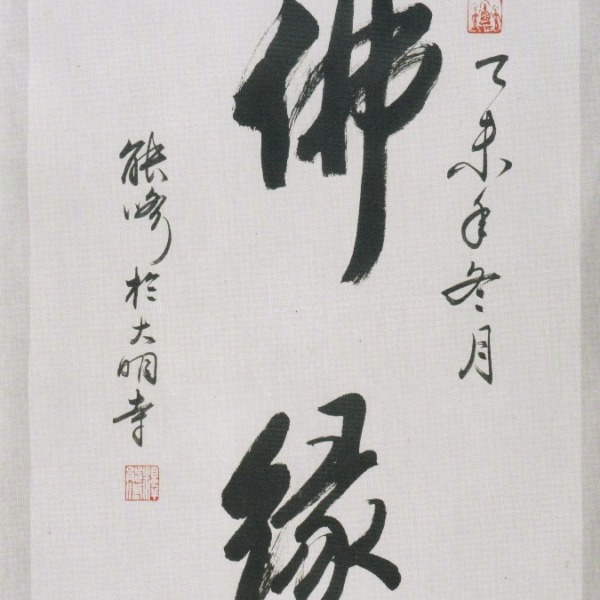 乙未年冬月
佛緣
能修於大明寺